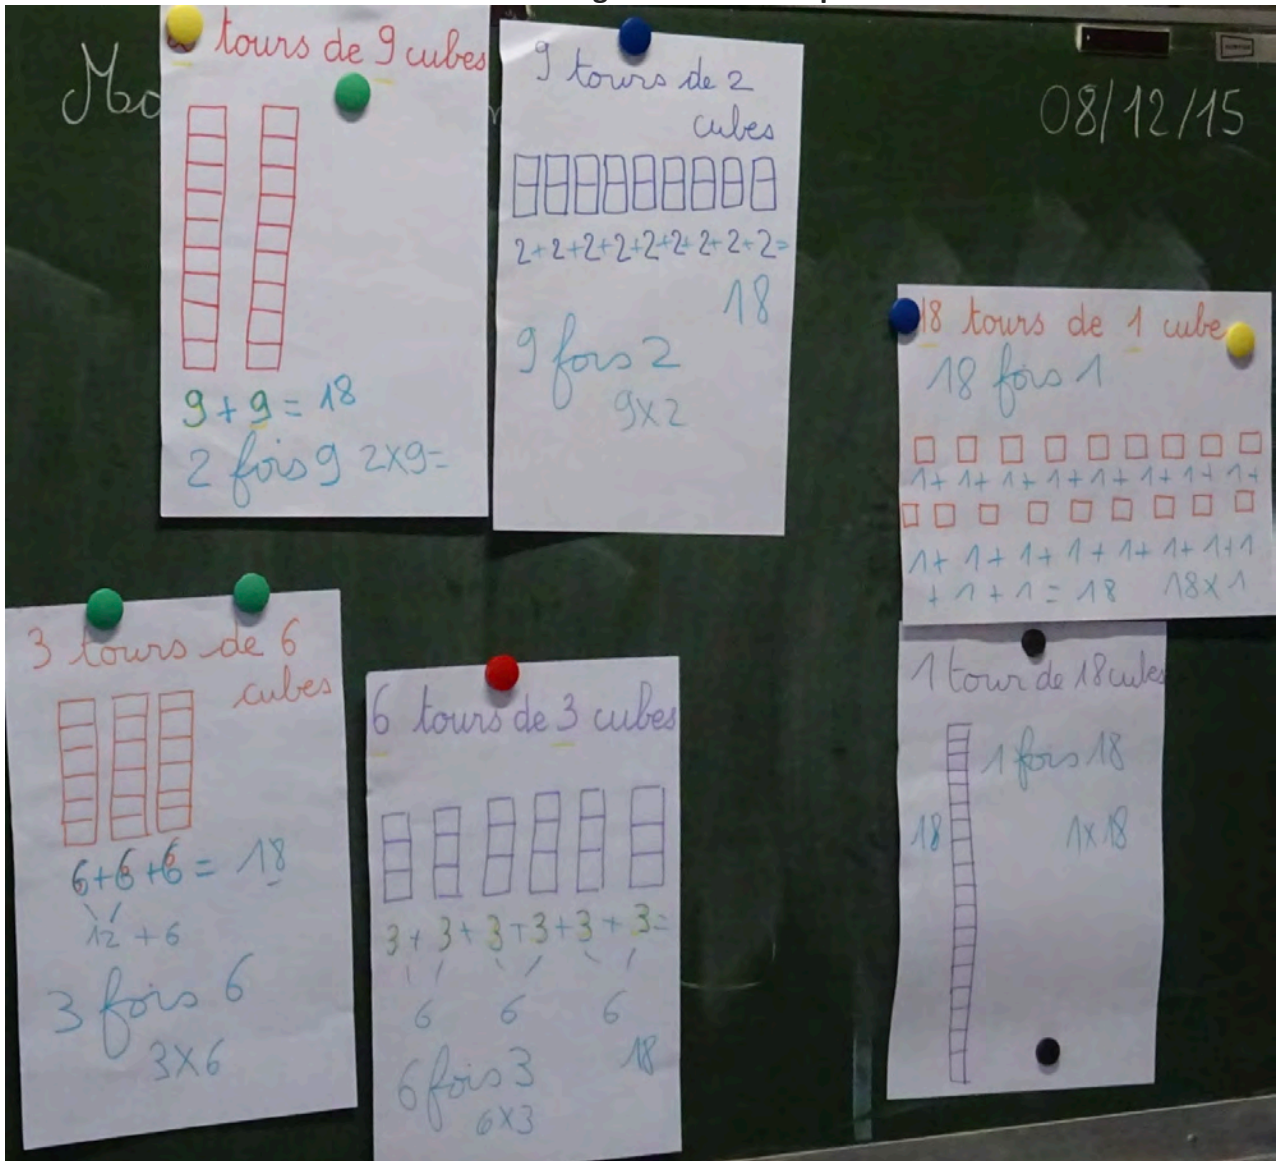 08/12/15
tours de 9 cubes
9 + 9 = 18
2 fois 9 2x9=
9 tours de 2
cubes
2+2+2+2+2+2+2+2+2=
18
9 fois 2
9x2
18 tours de 1 cube
18 fois 1
1+ 1+ 1+ 1+ 1+ 1+ 1+ 1+ 1+
1+ 1+ 1+ 1+ 1+ 1+ 1+1
+ 1 + 1 = 18 18x1
3 tours de 6
cubes
6+6+6 = 18
12 + 6
3 fois 6
3x6
6 tours de 3 cubes
3+3+3+3+3+3=
6 6 6
18
6 fois 3
6x3
1 tour de 18 cubes
1 fois 18
18
1x18